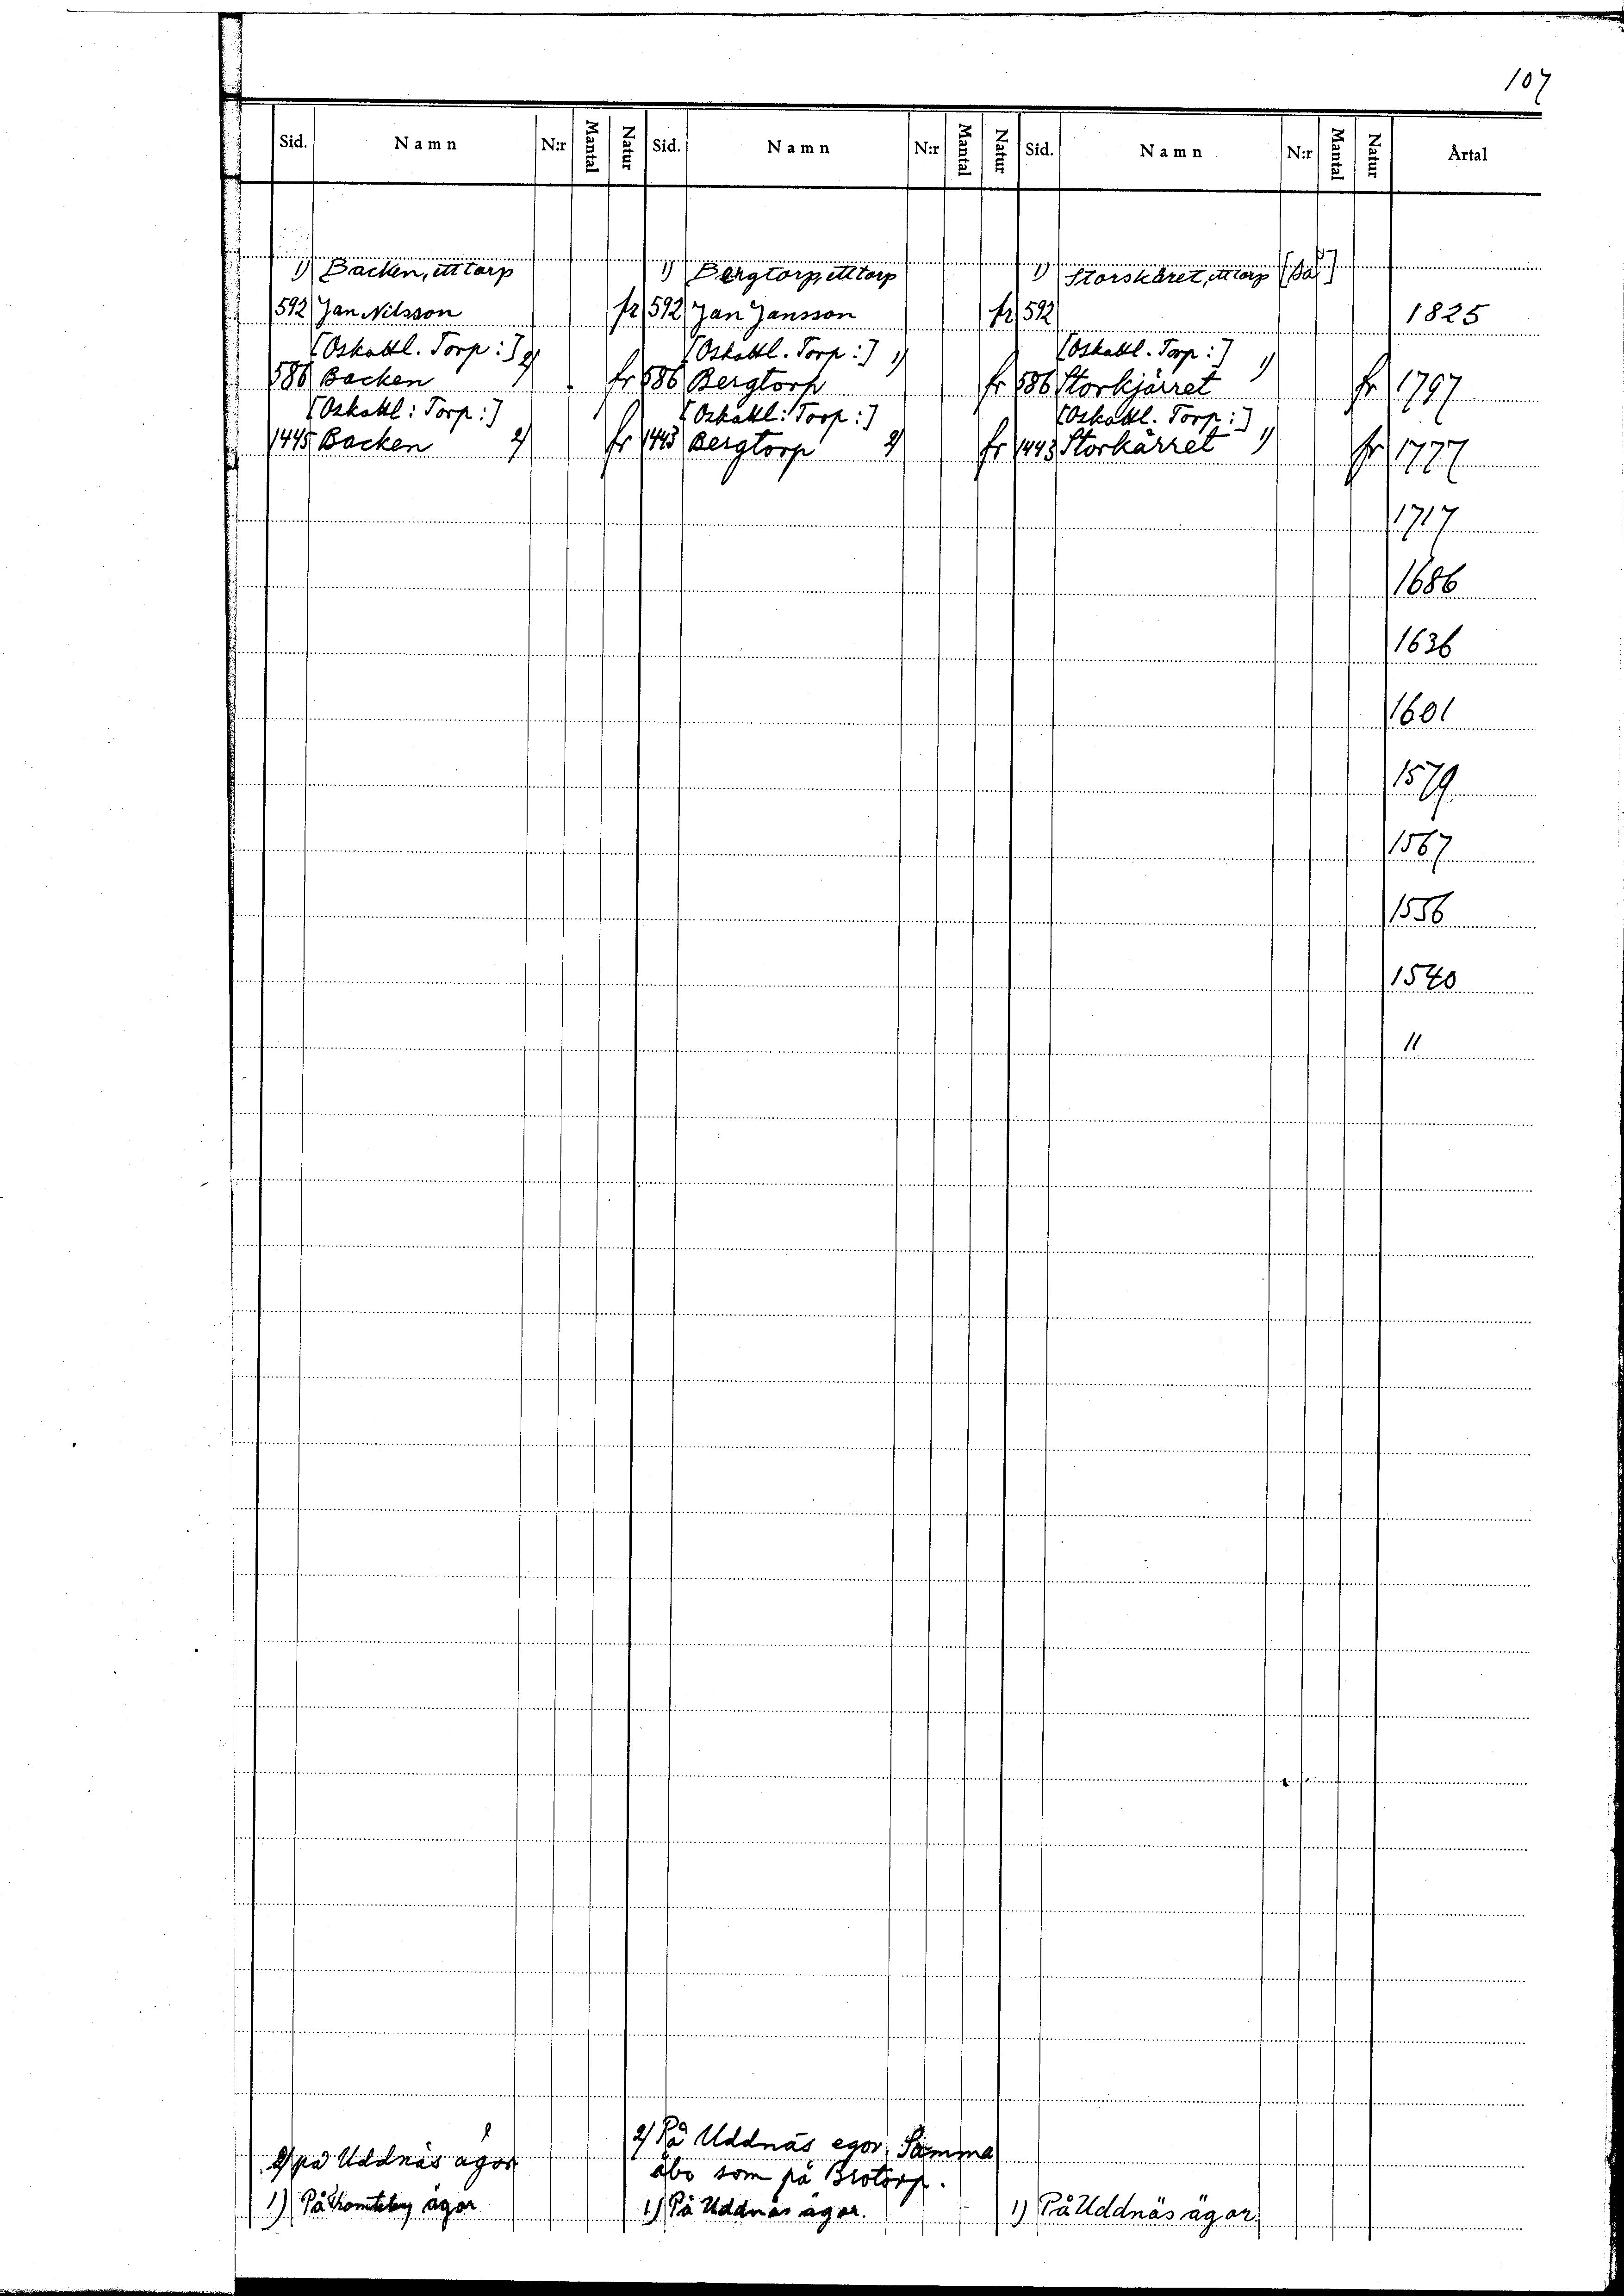 107
Sid. Namn N:r Mantal Natur Sid. Namn N:r Mantal Natur Sid. Namn N:r Mantal Natur Årtal
1) Backen, ett torp 1) Bergtorp, ett torp 1) Storskäret, ett torp
592 Jan Nilsson fr 592 Jan Jansson fr 592 1825
[Oskattl. Torp:] 2) [Oskattl. Torp:] 1) [Oskattl. Torp:] 1)
586 Backen fr 586 Bergtorp fr 586 Storkjärret fr 1797
[Oskattl: Torp:] [Oskattl: Torp:] [Oskattl. Torp:]
1445 Backen 2) fr 1443 Bergtorp 2) fr 1443 Storkärret 1) fr 1777
1717
1686
1636
1601
1579
1567
1556
1540
"
2) på Uddnäs ägor 2) På Uddnäs egor Samma
åbo som på Brotorp.
1) På ägor 1) På Uddnäs ägor. 1) På Uddnäs ägor.